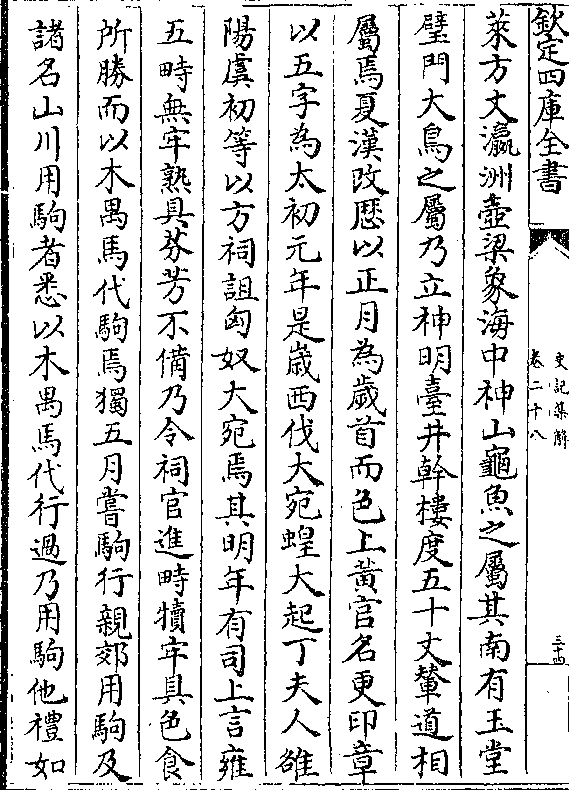 欽定四庫全書
史記集解
卷二十八
三十四
萊方丈瀛洲壺梁象海中神山龜魚之屬其南有玉堂
璧門大鳥之屬乃立神明臺井幹樓度五十丈輦道相
屬焉夏漢改厯以正月為歲首而色上黃官名更印章
以五字為太初元年是嵗西伐大宛蝗大起丁夫人雒
陽虞初等以方祠詛匈奴大宛焉其明年有司上言雍
五畤無牢熟具芬芳不備乃令祠官進畤犢牢具色食
所勝而以木禺馬代駒焉獨五月嘗駒行親郊用駒及
諸名山川用駒者悉以木禺馬代行過乃用駒他禮如